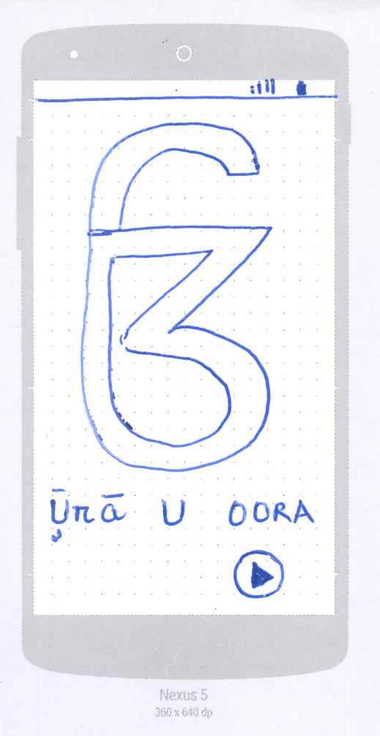 ੳ
Ūṛā U OORA
Nexus 5
360 x 640 dp